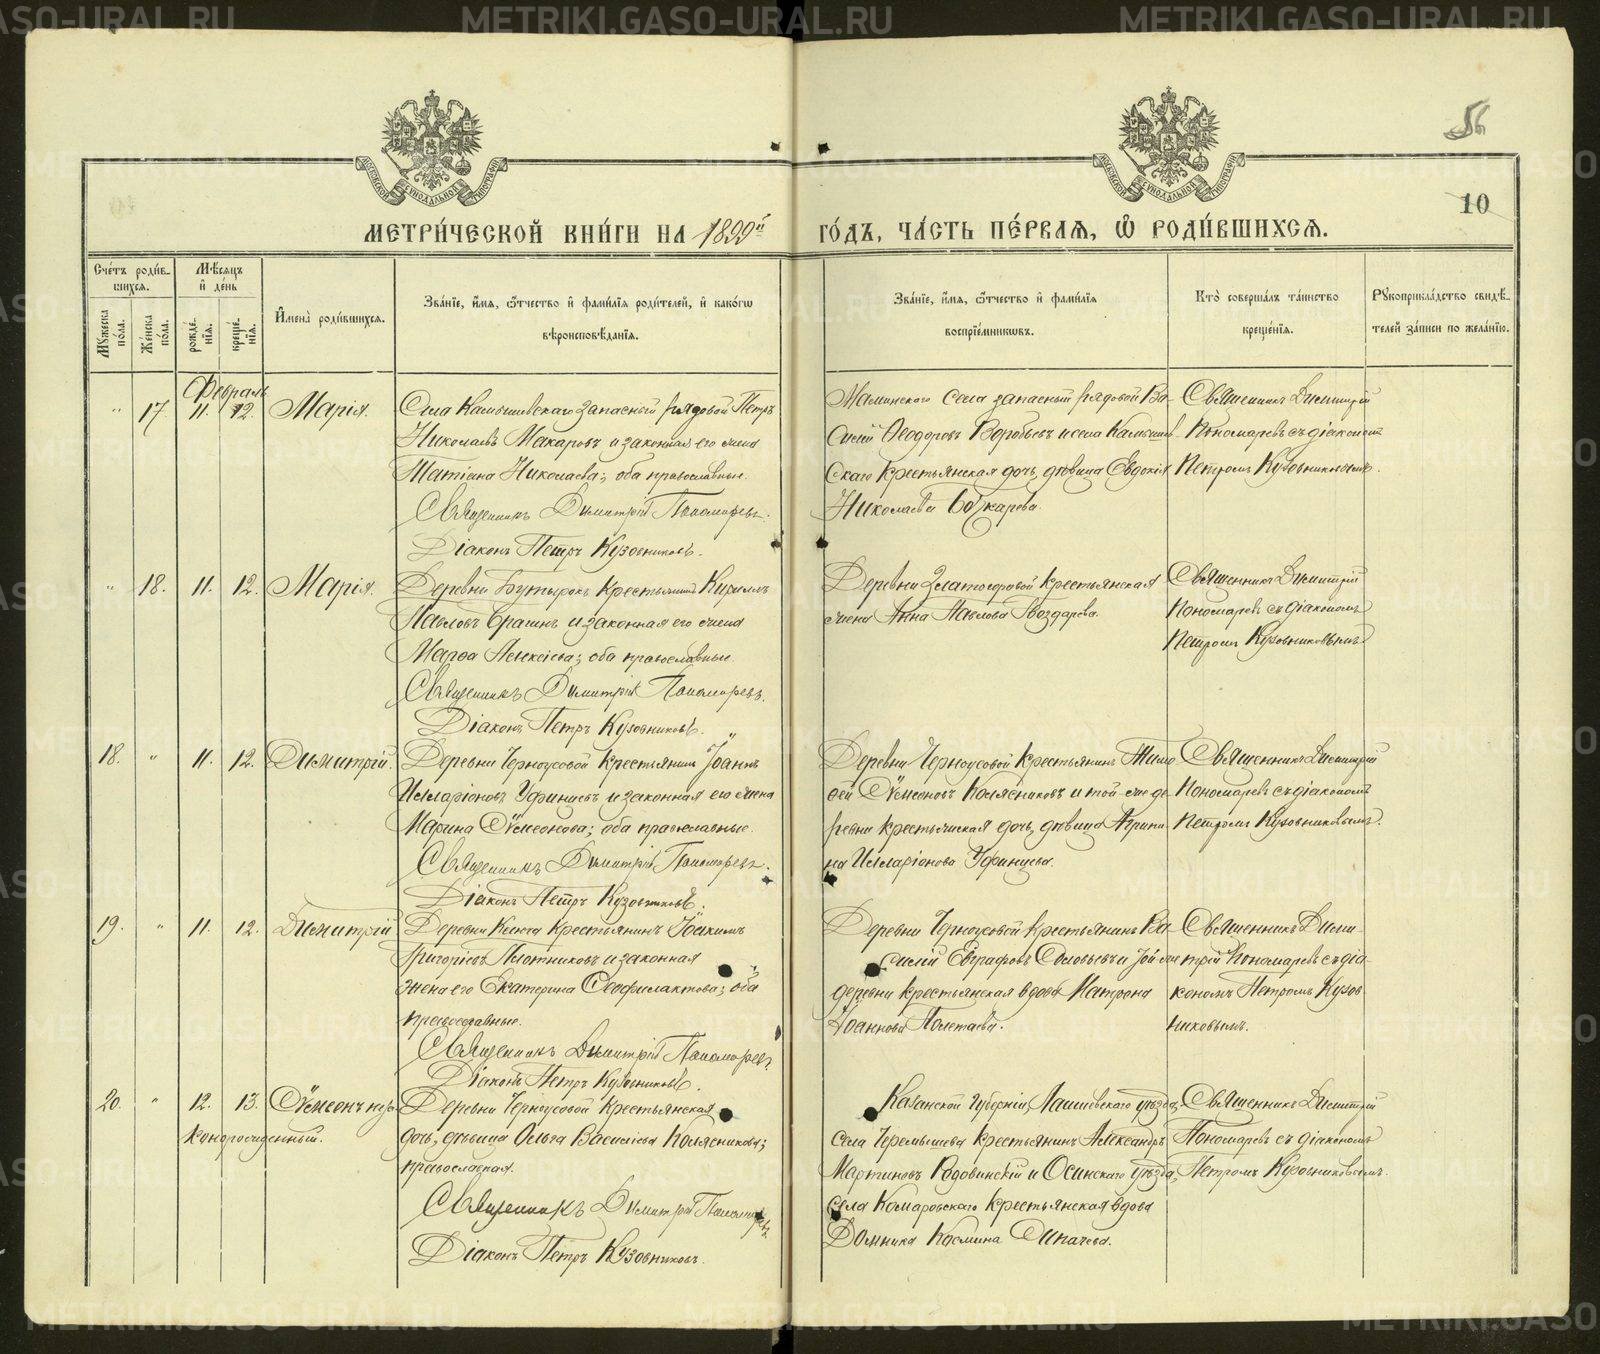 METRIKI.GASO-URAL.RU
56
10
МЕТРИ́ЧЕСКОЙ КНИ́ГИ НА 1899й ГО́ДЪ, ЧА́СТЬ ПЕ́РВАѦ, Ѽ РОДИ́ВШИХСѦ.
Сче́тъ роди́в-
шихсѧ.
Мꙋ́жеска по́ла.
Же́нска по́ла.
Мѣ́сѧцъ и҆ де́нь
рожде́-нїѧ.
креще́-нїѧ.
И҆мена̀ роди́вшихсѧ.
Зва́нїе, и҆́мѧ, ѻ҆́тчество и҆ фами́лїѧ роди́телей, и҆ како́гѡ
вѣроисповѣ́данїѧ.
Зва́нїе, и҆́мѧ, ѻ҆́тчество и҆ фами́лїѧ
воспрїе́мникѡвъ.
Кто̀ соверша́лъ та́инство
креще́нїѧ.
Рꙋкоприкла́дство свидѣ́-
телей за́писи по жела́нїю.
Февраль
" 17 11. 12. Марія.
Села Камышевскаго запасный рядовой Петръ
Николаевъ Макаровъ и законная его жена
Татіана Николаева; оба православные.
Священникъ Димитрій Пономаревъ.
Діаконъ Петръ Кузовниковъ.
Маминскаго села запасный рядовой Ва-
силій Ѳеодоровъ Воробьевъ и села Камышев-
скаго крестьянская дочь, дѣвица Евдокія
Николаева
Священникъ Димитрій
Пономаревъ съ діакономъ
Петромъ Кузовниковымъ.
" 18. 11. 12. Марія.
Деревни Бутырокъ крестьянинъ Кириллъ
Павловъ Брагинъ и законная его жена
Марѳа Алексіева; оба православные.
Священникъ Димитрій Пономаревъ.
Діаконъ Петръ Кузовниковъ.
Деревни Златогоровой крестьянская
жена Анна Павлова Гвоздарева.
Священникъ Димитрій
Пономаревъ съ діакономъ
Петромъ Кузовниковымъ
18. " 11. 12. Димитрій.
Деревни Черноусовой крестьянинъ Іоаннъ
Илларіоновъ Уфинцевъ и законная его жена
Марина Сѵмеонова; оба православные.
Священникъ Димитрій Пономаревъ.
Діаконъ Петръ Кузовниковъ.
Деревни Черноусовой крестьянинъ Тимо-
ѳей Сѵмеоновъ Колясниковъ и той-же де-
ревни крестьянская дочь, дѣвица Агрипи-
на Илларіонова Уфинцева.
Священникъ Димитрій
Пономаревъ съ діакономъ
Петромъ Кузовниковымъ.
19. " 11. 12. Димитрій
Деревни Ключа крестьянинъ Іоакимъ
Григоріевъ Плотниковъ и законная
жена его Екатерина Ѳеофилактова; оба
православные.
Священникъ Димитрій Пономаревъ
Діаконъ Петръ Кузовниковъ.
Деревни Черноусовой крестьянинъ Ва-
силій Евграфовъ Соловьевъ и той же
деревни крестьянская вдова Матрона
Іоаннова Полетаева.
Священникъ Дими-
трій Пономаревъ съ діа-
кономъ Петромъ Кузов-
никовымъ.
20. " 12. 13. Сѵмеонъ неза-
коннорожденный.
Деревни Черноусовой крестьянская
дочь, дѣвица Ольга Василіева Колясникова;
православная.
Священникъ Димитрій Пономаревъ.
Діаконъ Петръ Кузовниковъ.
Казанской губерніи, Лаишевскаго уѣзда,
села Черемышева крестьянинъ Александръ
Мартиновъ Родовинскій и Осинскаго уѣзда,
села Комаровскаго крестьянская вдова
Домника Космина Сипачева.
Священникъ Димитрій
Пономаревъ съ діакономъ
Петромъ Кузовниковымъ.